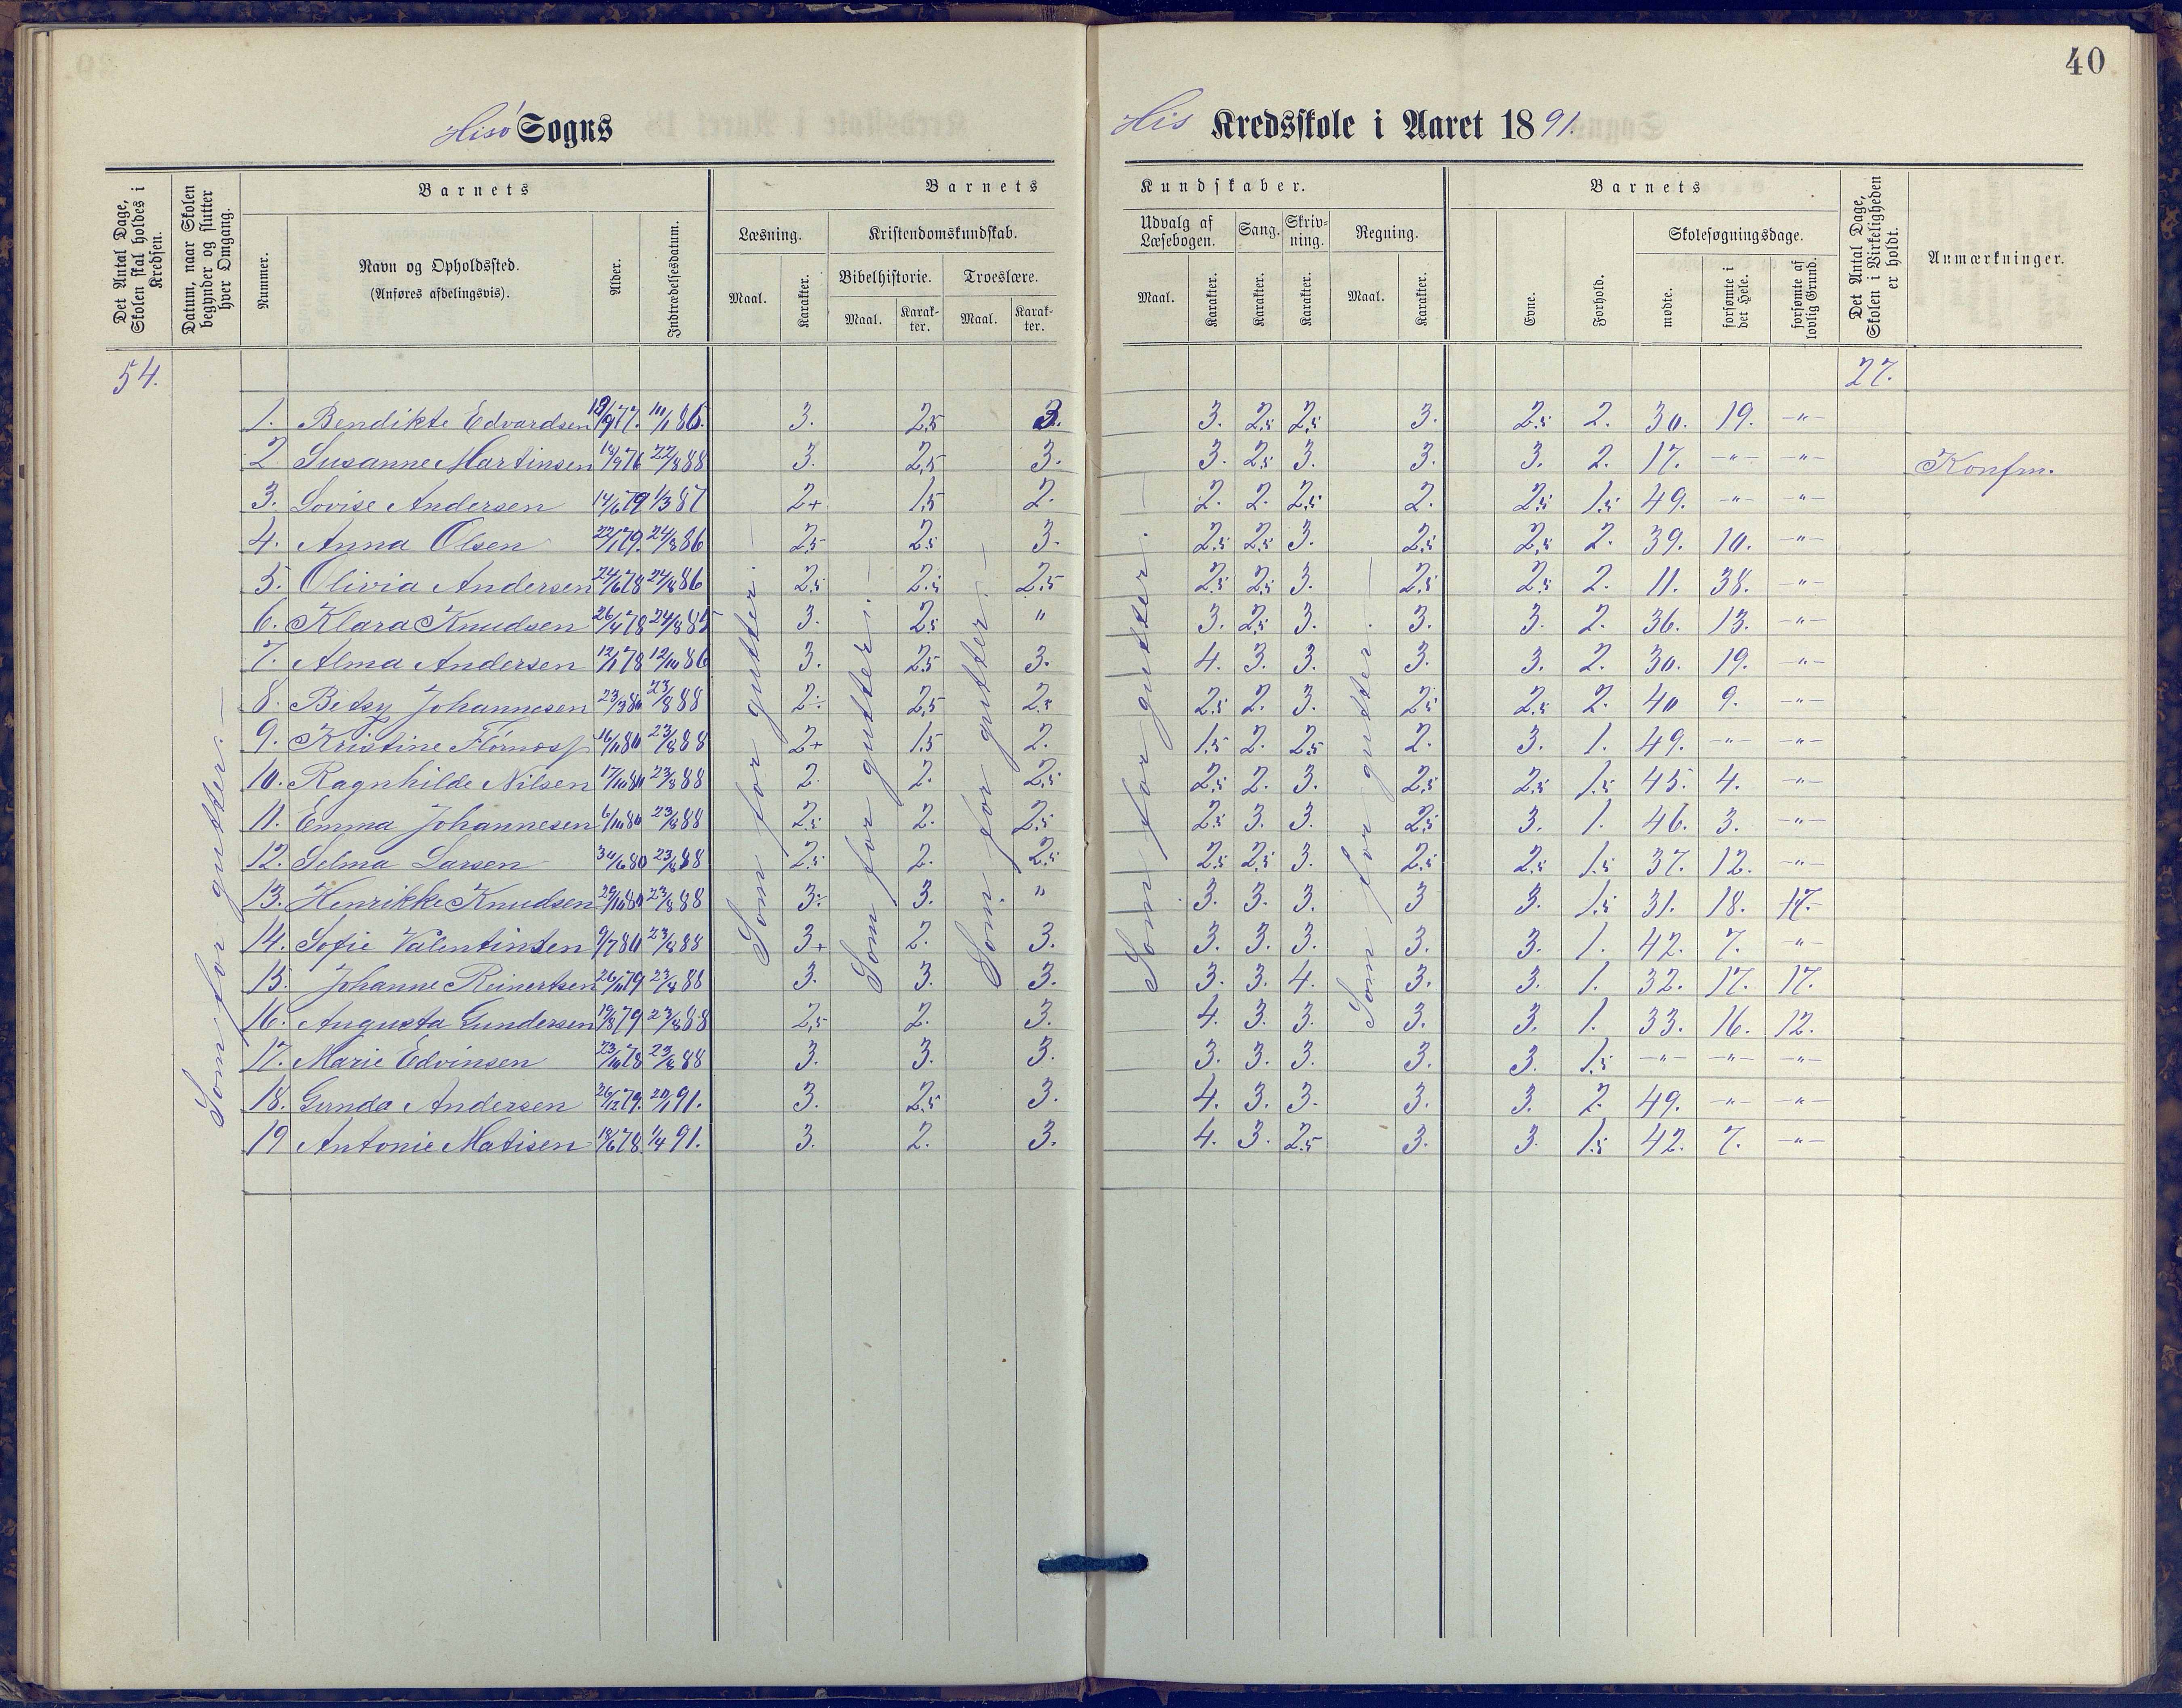 40
Hisø Sogns
His Kredsskole i Aaret 1891.
Det Antal Dage, Skolen skal holdes i Kredsen.
Datum, naar Skolen begynder og slutter hver Omgang.
Barnets
Nummer.
Navn og Opholdssted.
(Anføres afdelingsvis).
Alder.
Indtrædelsesdatum.
Barnets Kundskaber.
Læsning.
Maal.
Karakter.
Kristendomskundskab.
Bibelhistorie.
Maal.
Karakter.
Troeslære.
Maal.
Karakter.
Udvalg af Læsebogen.
Maal.
Karakter.
Sang.
Karakter.
Skrivning.
Karakter.
Regning.
Maal.
Karakter.
Barnets
Evne.
Forhold.
Skolesøgningsdage.
mødte.
forsømte i det Hele.
forsømte af lovlig Grund.
Det Antal Dage, Skolen i Virkeligheden er holdt.
Anmærkninger.
54. 27.
Som for gutter.—
Som for gutter.—
Som for gutter.—
Som for gutter.—
Som for gutter.—
Som for gutter.—
1. Bendikte Edvardsen 19/9 77. 3. 2,5 3. 3. 2,5 2,5 3. 2,5 2. 30. 19. -"-
2 Susanne Martinsen 22/8 88 3. 2,5 3. 3. 2,5 3. 3. 3. 2. 17. -"- -"- Konfm.
3. Lovise Andersen 14/6 79 1/3 87 2+ 1,5 2. 2. 2. 2,5 2. 2,5 1,5 49. -"- -"-
4. Anna Olsen 22/1 79. 24/8 86 2,5 2,5 3. 2,5 2,5 3. 2,5 2,5 2. 39. 10. -"-
5. Olivia Andersen 24/6 78 24/8 86 2,5 2,5 2,5 2,5 2,5 3. 2,5 2,5 2. 11. 38. -"-
6. Klara Knudsen 26/4 78 24/8 85 3. 2,5 " 3. 2,5 3. 3. 3. 2. 36. 13. -"-
7. Alma Andersen 12/1 78 12/10 86 3. 2,5 3. 4. 3. 3. 3. 3. 2. 30. 19. -"-
8. Betsy Johannesen 23/3 80 23/8 88 2. 2,5 2,5 2,5 2. 3. 2,5 2,5 2. 40 9. -"-
9. Kristine 16/11 80 23/8 88 2+ 1,5 2. 1,5 2. 2,5 2. 3. 1. 49. -"- -"-
10. Ragnhilde Nilsen 17/10 80 23/8 88 2. 2. 2,5 2,5 2. 3. 2,5 2,5 1,5 45. 4. -"-
11. Emma Johannesen 6/10 80 23/8 88 2,5 2. 2,5 2,5 3. 3. 2,5 3. 1. 46. 3. -"-
12. Selma Larsen 30/6 80 23/8 88 2,5 2. 2,5 2,5 2,5 3. 2,5 2,5 1,5 37. 12. -"-
13. Henrikke Knudsen 29/10 80 23/8 88 3. 3. " 3. 3. 3. 3 3. 1,5 31. 18. 17.
14. Sofie Valentinsen 9/7 80 23/8 88 3+ 2. 3. 3. 3. 3. 3. 3. 1. 42. 7. -"-
15. Johanne Reinertsen 26/11 79 23/8 88 3. 3. 3. 3. 3. 4. 3. 3. 1. 32. 17. 17.
16. Augusta Gundersen 19/8 79 23/8 88 2,5 2. 3. 4. 3. 3. 3. 3. 1. 33. 16. 12.
17. Marie Edvinsen 23/10 78 23/8 88 3. 3. 3. 3. 3. 3. 3. 3 1,5 -"- -"- -"-
18. Gunda Andersen 26/12 79. 20/1 91. 3. 2,5 3. 4. 3. 3. 3. 3. 2. 49. -"- -"-
19 Antonie Matisen 18/6 78 1/4 91. 3. 2. 3. 4. 3. 2,5 3. 3. 1,5 42. 7. -"-